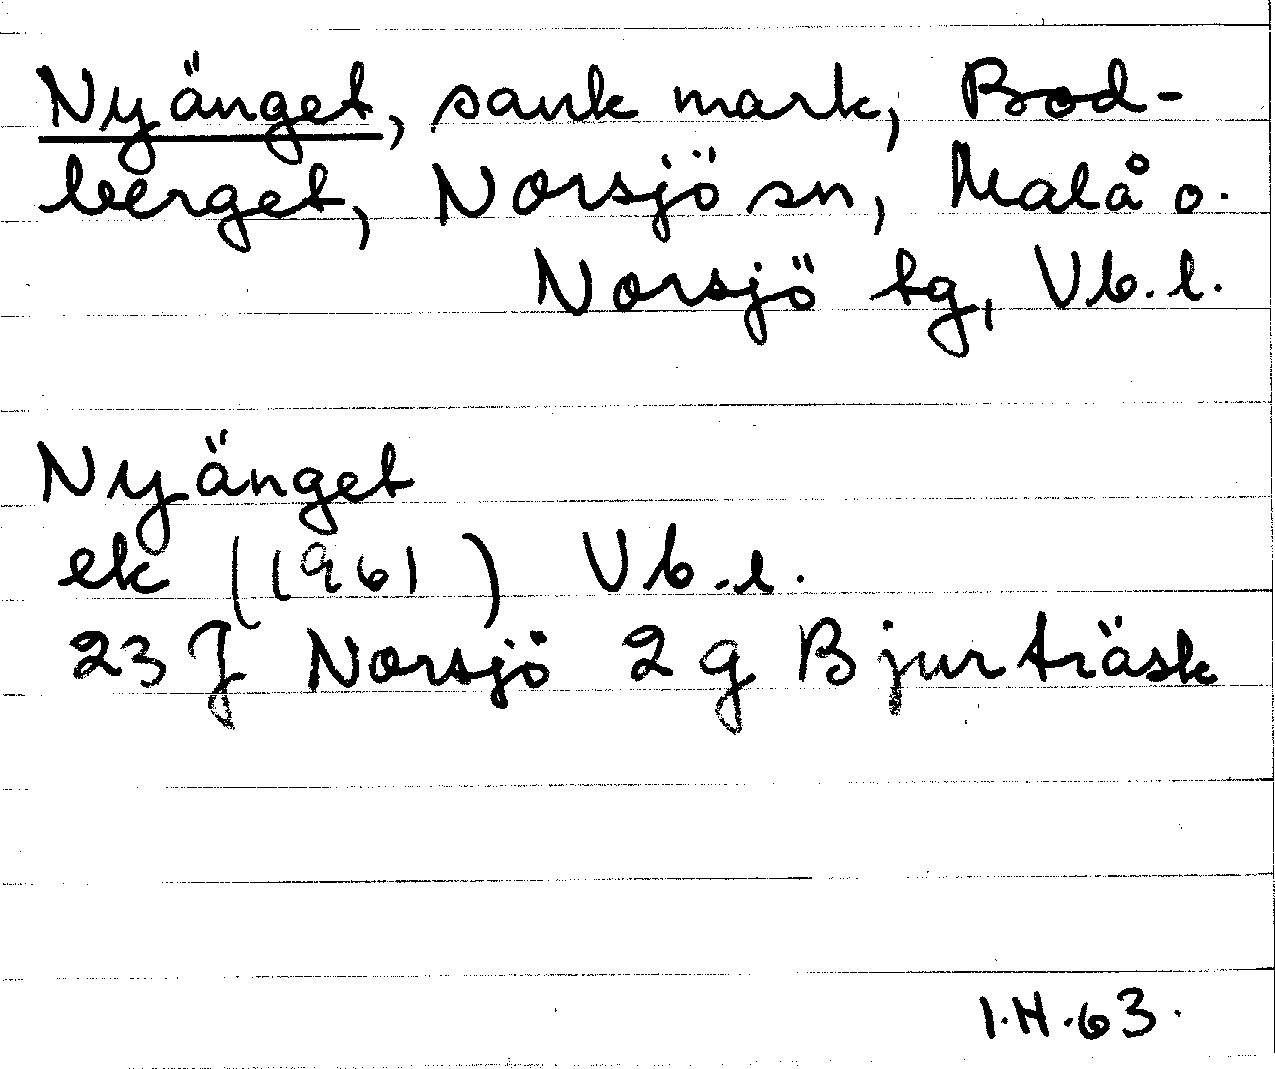 Nyänget, sank mark, Bod-
berget, Norsjö sn, Malå o.
Norsjö tg, Vb. l.
Nyänget
ek (1961) Vb. l.
23 J Norsjö 2 g Bjurträsk
I.H. 63.